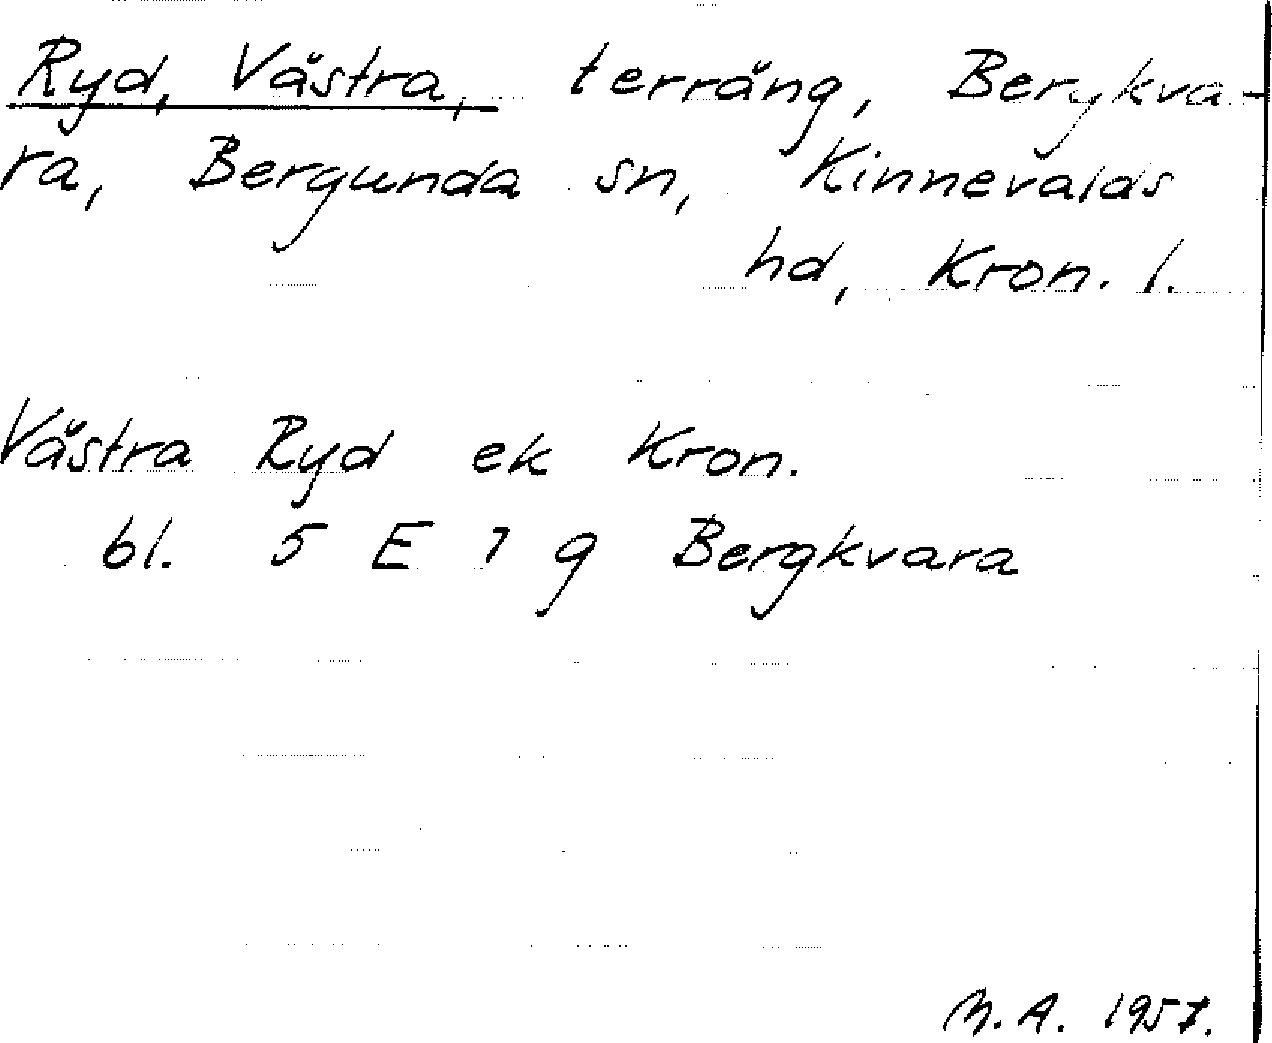 Ryd, Västra, terräng, Bergkva-
ra, Bergunda sn, Kinnevalds
hd, Kron. l.
Västra Ryd ek Kron.
bl. 5 E 7 g Bergkvara
M.A. 1957.